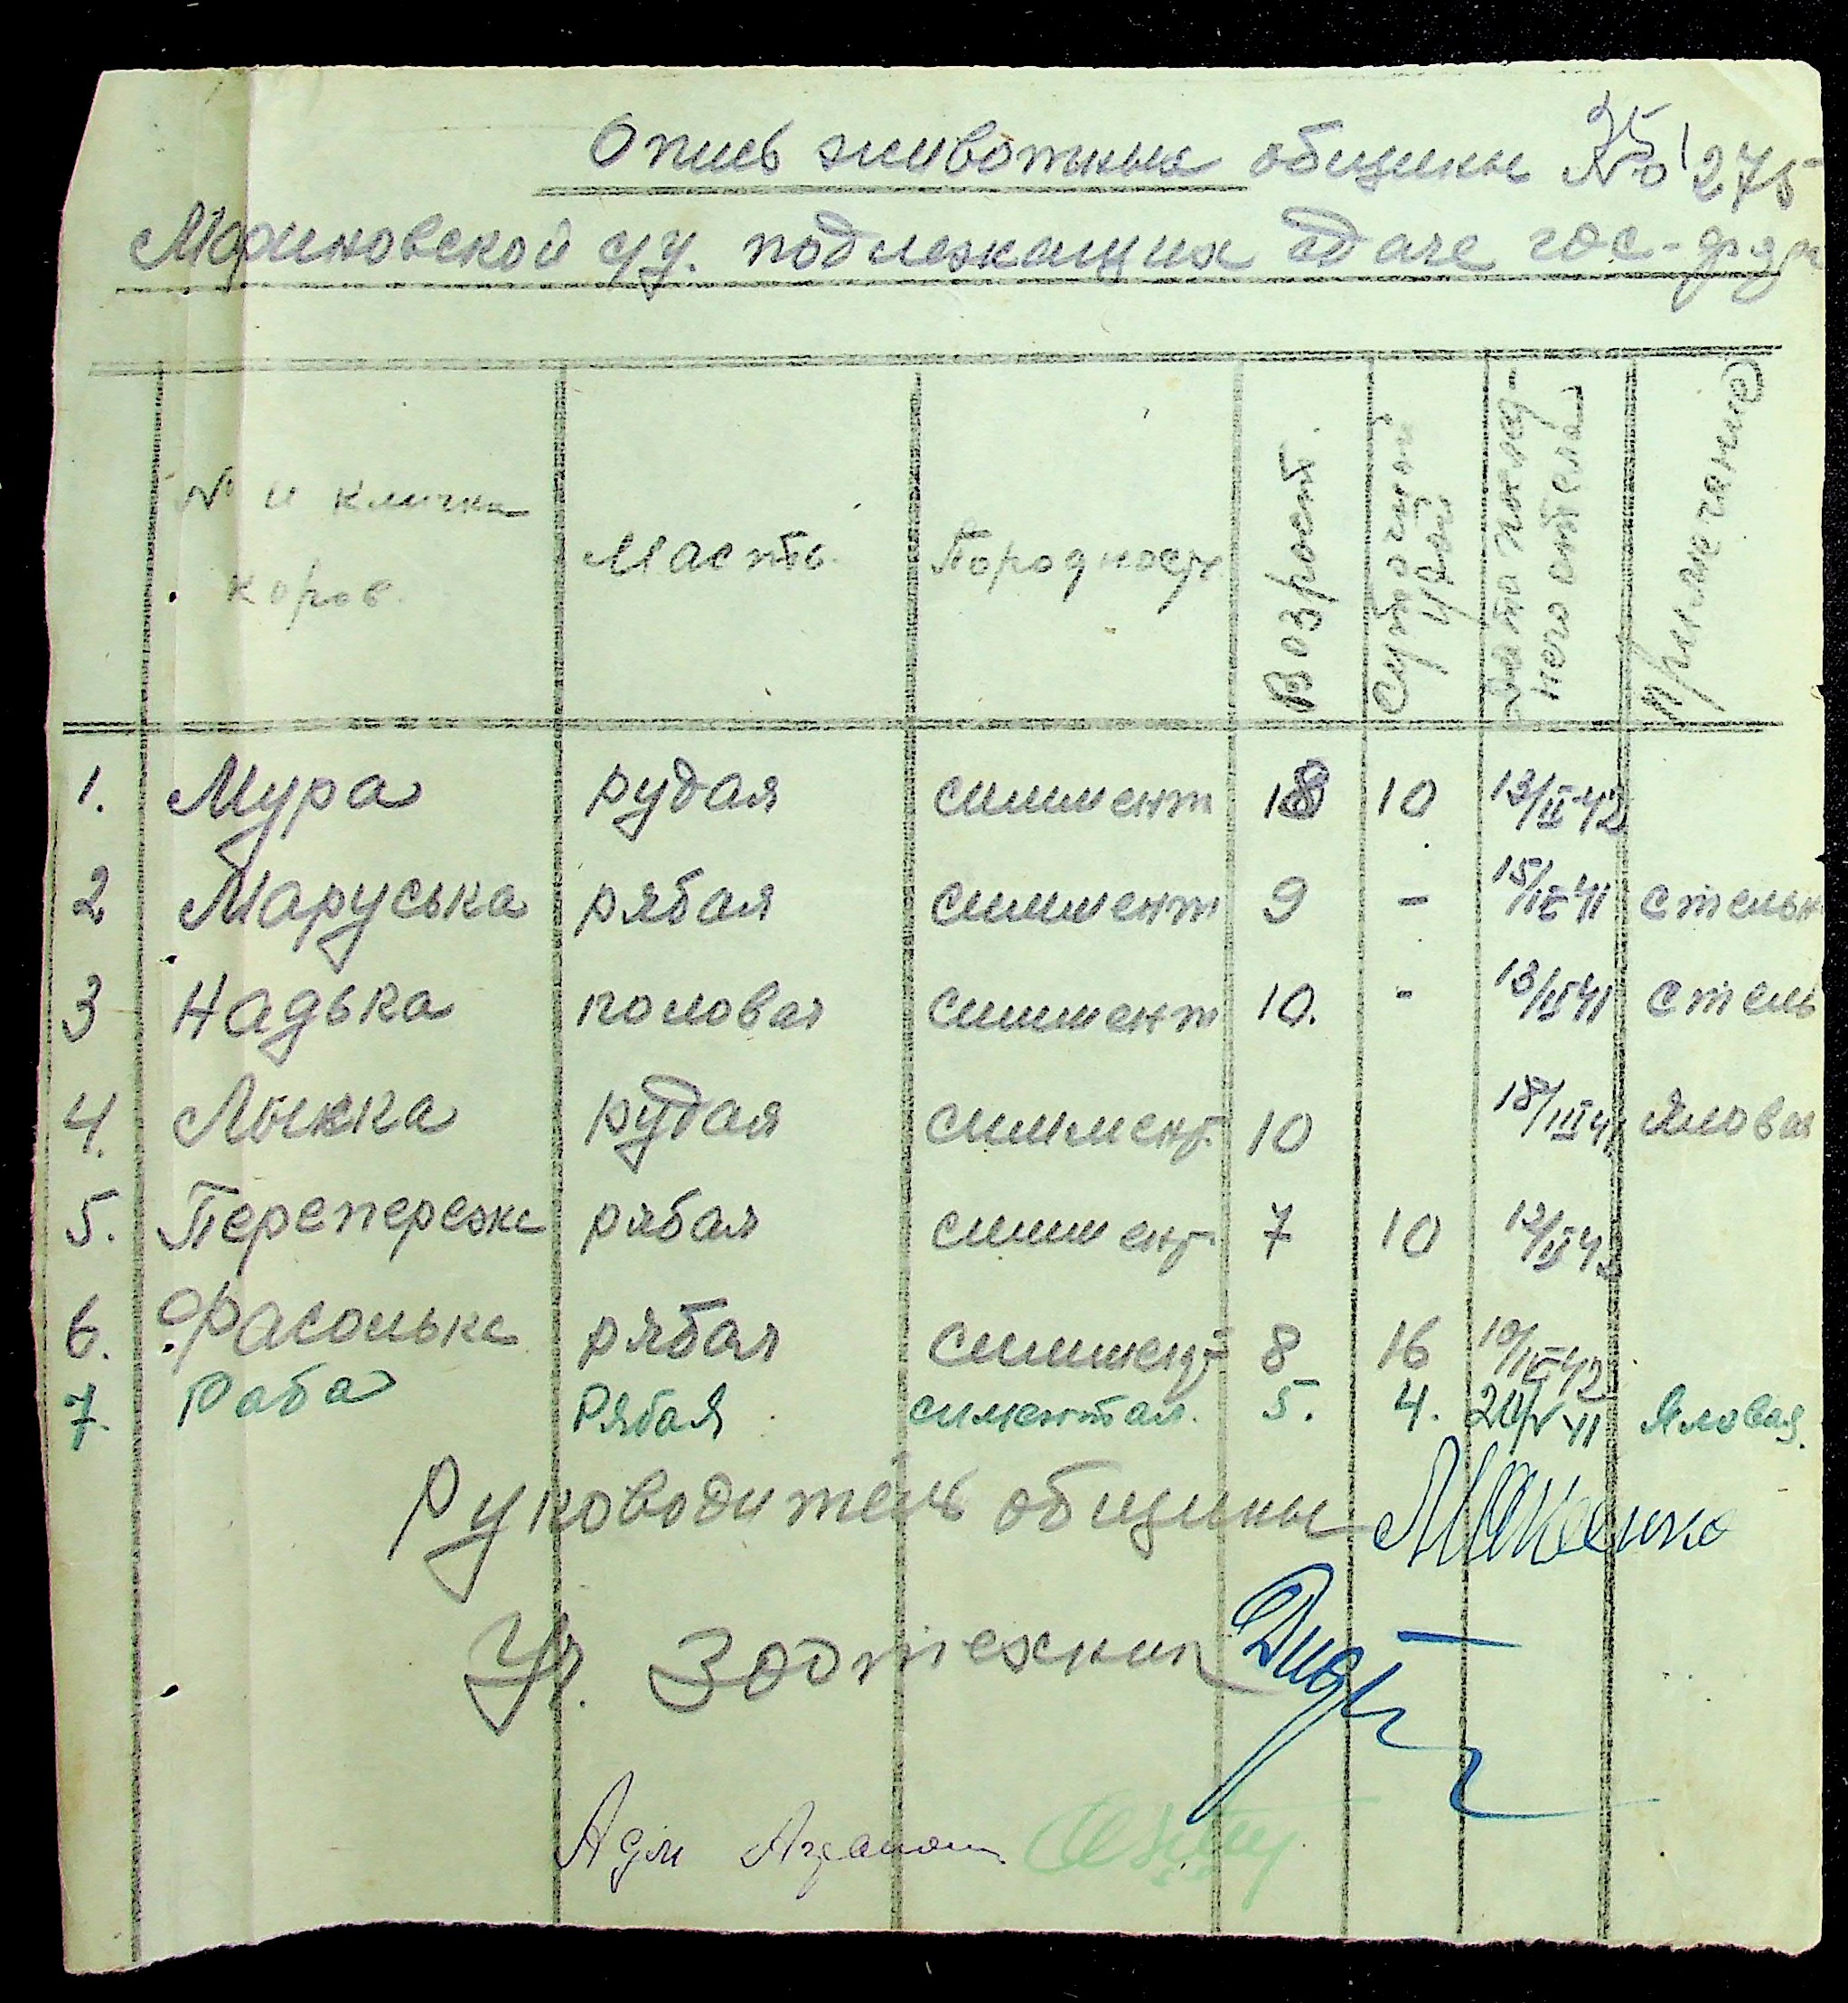 35
Опись животных общины № 275
Мариновской с/у. подлежащих сдаче гос-
№ и кличка коров. Масть. Породность Возраст. Суточный удой Дата последнего отела Примечание
1. Мура рудая симмент 18 10 13/II 42
2 Маруська рябая симмент 9 - 15/IV 41 стельн
3 Надька половая симмент 10. - 13/IV 41 стель
4. Лыжка рудая симмент. 10 18/III 4 Яловая
5. Перепережа рябая симмент. 7 10 12/II 42
6. Фасонька рябая симмент 8 16 10/IV 42
7. Раба Рябая симентал. 5. 4. 41 Яловая.
Руководитель общины
Уч. Зоотехник
Адм